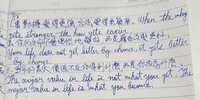 變得更強,方法變得更簡單. When the why
gets stronger, the how gets easier.
你的生活不會
Your life does not get better by chance, it gets better
by change.
得到什麼,而是你成為什麼. The
major value in life is not what you get. The
major value in life is what you become.